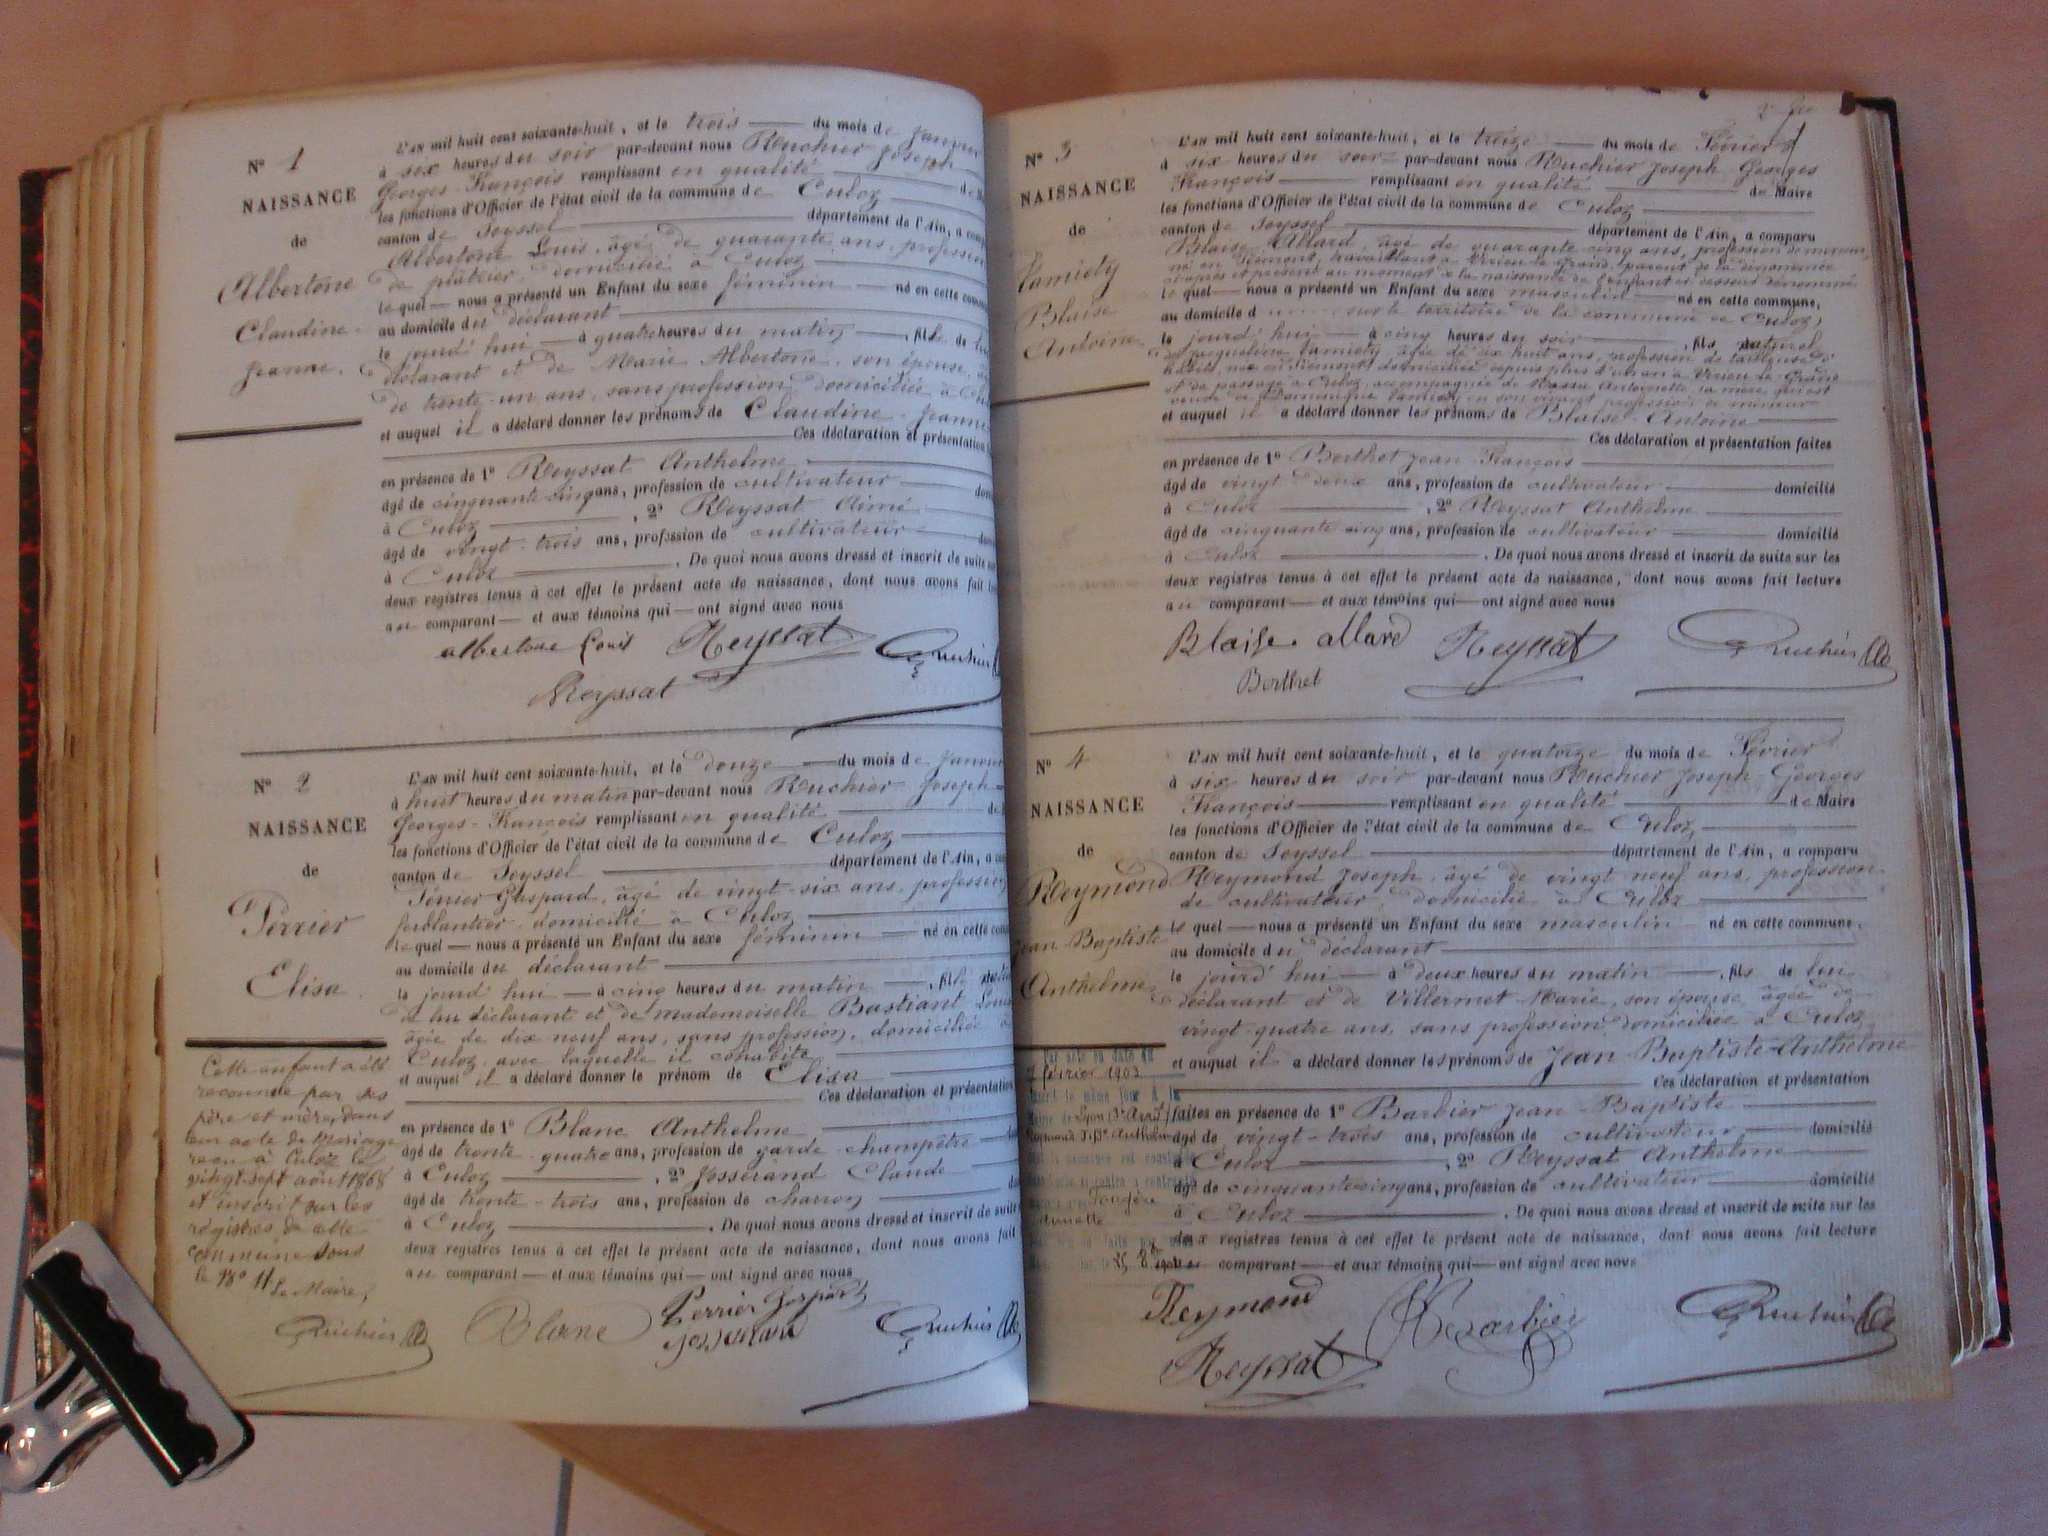 N° 1
NAISSANCE
de
Albertone
Claudine-
Jeanne.
L'AN mil huit cent soixante-huit, et le trois du mois de Janvier
à six heures du soir par-devant nous Ruchier Joseph
Georges-François remplissant en qualité de
les fonctions d'Officier de l'état civil de la commune de Culoz
canton de Seyssel département de l'Ain, a comparu
Albertone Louis, âgé de quarante ans, profession
de plâtrier, domicilié à Culoz
le quel nous a présenté un Enfant du sexe féminin né en cette commune
au domicile du déclarant
le jourd'hui à quatre heures du matin, fille de lui
déclarant et de Marie Albertone, son épouse, âgée
de trente-un ans, sans profession, domiciliée à Culoz
et auquel il a déclaré donner les prénoms de Claudine-Jeanne
Ces déclaration et présentation
en présence de 1° Reyssat Anthelme
âgé de cinquante-cinq ans, profession de cultivateur
à Culoz, 2° Reyssat Aimé
âgé de vingt-trois ans, profession de cultivateur
à Culoz. De quoi nous avons dressé et inscrit de suite sur
deux registres tenus à cet effet le présent acte de naissance, dont nous avons fait
au comparant et aux témoins qui ont signé avec nous
albertone Louis Reyssat Ruchier
Reyssat
N° 2
NAISSANCE
de
Perrier
Elisa
L'AN mil huit cent soixante-huit, et le douze du mois de Janvier
à huit heures du matin par-devant nous Ruchier Joseph-
Georges-François remplissant en qualité de
les fonctions d'Officier de l'état civil de la commune de Culoz
canton de Seyssel département de l'Ain, a
Perrier Gaspard, âgé de vingt-six ans, profession
ferblantier, domicilié à Culoz
le quel nous a présenté un Enfant du sexe féminin né en cette
au domicile du déclarant
le jourd'hui à cinq heures du matin, fille
de lui déclarant et de mademoiselle Bastiant
âgée de dix neuf ans, sans profession, domiciliée à
Culoz, avec laquelle il cohabite
et auquel il a déclaré donner le prénom de Elisa
Ces déclaration et présentation
en présence de 1° Blanc Anthelme
âgé de trente-quatre ans, profession de garde-champêtre
à Culoz, 2° Josserand Claude
âgé de trente-trois ans, profession de charron
à Culoz. De quoi nous avons dressé et inscrit de suite
deux registres tenus à cet effet le présent acte de naissance, dont nous avons fait
au comparant et aux témoins qui ont signé avec nous
Blanc Perrier Gaspard Ruchier
Josserand
Cette enfant a été
reconnue par ses
père et mère, dans
leur acte de Mariage
reçu à Culoz le
vingt-sept août 1868
et inscrit sur les
régistres de cette
commune sous
le N° 11.
Le Maire,
Ruchier
N° 3
NAISSANCE
de
Tamiety
Blaise
Antoine
L'AN mil huit cent soixante-huit, et le treize du mois de Février
à six heures du soir par-devant nous Ruchier Joseph Georges
François remplissant en qualité de Maire
les fonctions d'Officier de l'état civil de la commune de Culoz
canton de Seyssel département de l'Ain, a comparu
Blaise Allard, âgé de quarante cinq ans, profession de mineur,
né en Piémont, travaillant à Virieu-le-Grand, parent de la dénommée
ci-après et présent au moment de la naissance de l'enfant ci-dessous dénommé
le quel nous a présenté un Enfant du sexe masculin né en cette commune,
au domicile d (sur le territoire de la commune de Culoz)
le jourd'hui à cinq heures du soir, fils naturel
de Jacqueline Tamiety âgée de dix huit ans, profession de tailleuse
habits, née en Piémont, domiciliée depuis plus d'un an à Virieu-le-Grand
et de passage à Culoz, accompagnée de Antoinette sa mère, qui est
veuve de Dominique Tamiety, en son vivant profession de mineur
et auquel il a déclaré donner les prénoms de Blaise-Antoine
Ces déclaration et présentation faites
en présence de 1° Berthet Jean François
âgé de vingt deux ans, profession de cultivateur domicilié
à Culoz, 2° Reyssat Anthelme
âgé de cinquante cinq ans, profession de cultivateur domicilié
à Culoz. De quoi nous avons dressé et inscrit de suite sur les
deux registres tenus à cet effet le présent acte de naissance, dont nous avons fait lecture
au comparant et aux témoins qui ont signé avec nous
Blaise allard Reyssat Ruchier
Berthet
N° 4
NAISSANCE
de
Reymond
Jean Baptiste
Anthelme
L'AN mil huit cent soixante-huit, et le quatorze du mois de Février
à six heures du soir par-devant nous Ruchier Joseph-Georges
François remplissant en qualité de Maire
les fonctions d'Officier de l'état civil de la commune de Culoz
canton de Seyssel département de l'Ain, a comparu
Reymond Joseph, âgé de vingt neuf ans, profession
de cultivateur, domicilié à Culoz
le quel nous a présenté un Enfant du sexe masculin né en cette commune,
au domicile du déclarant
le jourd'hui à deux heures du matin, fils de lui
déclarant et de Villermet Marie, son épouse, âgée de
vingt-quatre ans, sans profession, domiciliée à Culoz
et auquel il a déclaré donner les prénoms de Jean-Baptiste-Anthelme
Ces déclaration et présentation
faites en présence de 1° Barbier Jean-Baptiste
âgé de vingt-trois ans, profession de cultivateur domicilié
à Culoz, 2° Reyssat Anthelme
âgé de cinquante cinq ans, profession de cultivateur domicilié
à Culoz. De quoi nous avons dressé et inscrit de suite sur les
deux registres tenus à cet effet le présent acte de naissance, dont nous avons fait lecture
au comparant et aux témoins qui ont signé avec nous
Reymond Barbier Ruchier
Reyssat
Par acte en date du
février 1903
le même jour à la
de Lyon